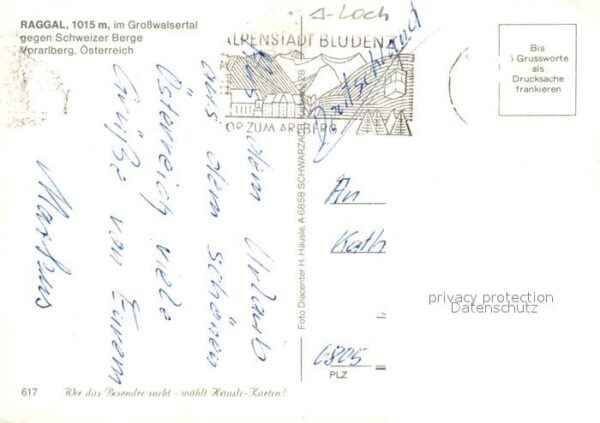 RAGGAL, 1015 m, im Großwalsertal
gegen Schweizer Berge
Vorarlberg, Österreich
1-Loch
ALPENSTADT BLUDENZ
TOR ZUM ARLBERG
Deutschland
Bis
5 Grussworte
als
Drucksache
frankieren
Aus dem Urlaub
aus dem schönen
Österreich viele
Grüße von Eurem
Markus
Foto Diacenter H. Häusle, A 6858 SCHWARZACH
An
Kath
6805
PLZ
privacy protection
Datenschutz
617
Wer das Besondre sucht - wählt Häusle-Karten!